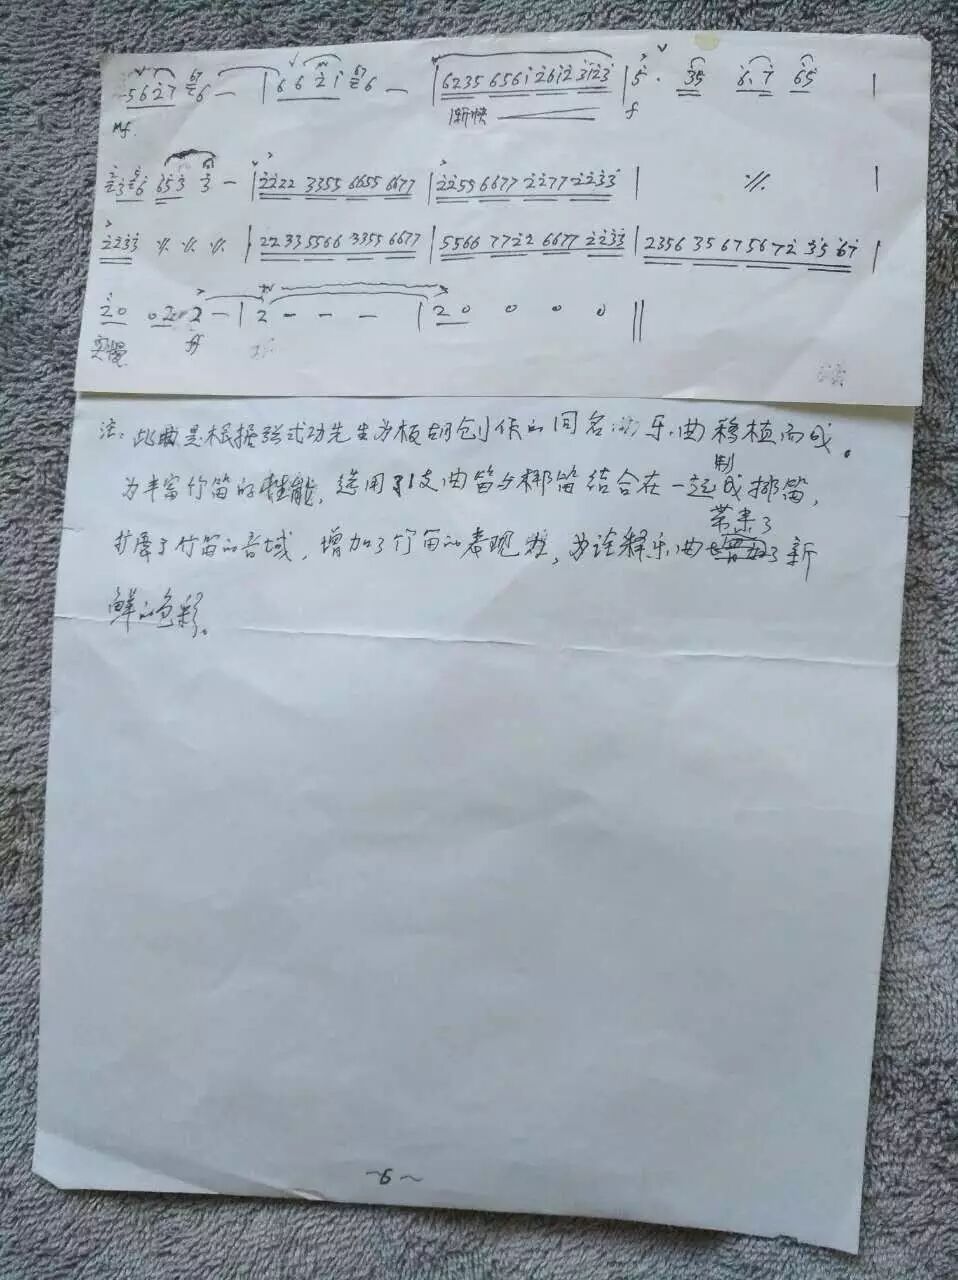 5 6 2 7 6 — | 6 6 2 1 6 — | 6235 6561 2612 3123 | 5 · 35 6·7 65 |
mf 渐快 f
3 6 653 3 — | 2222 3355 6655 6677 | 2255 6677 2277 2233 | ٪ |
2233 ٪ ٪ ٪ | 2233 5566 3355 6677 | 5566 7722 6677 2233 | 2356 3567 5672 3567 |
20 02 2 — | 2 — — — | 20 0 0 0 0 ‖
突慢
注:此曲是根据张式功先生为板胡创作的同名 乐曲移植而成。
为丰富竹笛的性能,选用了1支曲笛与梆笛结合在一起制成排笛,
扩展了竹笛的音域,增加了竹笛的表现力,为诠释乐曲带来了新
鲜的色彩。
~6~